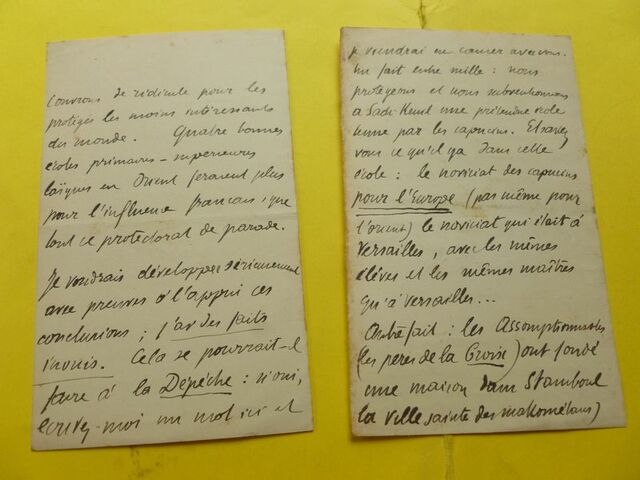 couvrons de ridicule pour les
protégés les moins intéressants
du monde. Quatre bonnes
écoles primaires-supérieures
laïques en Orient feraient plus
pour l'influence française, que
tout ce protectorat de parade.
Je voudrais développer sérieusement
avec preuves à l'appui ces
conclusions ; j'ai des faits
inouis. Cela se pourrait-il
faire à la Dépêche : si oui,
écrivez-moi un mot ici et
je voudrai en causer avec vous.
Un fait entre mille : nous
protégeons et nous subventionnons
à Sadi-Keuil une prétendue école
tenue par les capucins. Et savez
vous ce qu'il y a dans cette
école : le noviciat des capucins
pour l'Europe (pas même pour
l'orient) le noviciat qui était à
Versailles, avec les mêmes
élèves et les mêmes maîtres
qu'à Versailles...
Autre fait : les Assomptionnistes
(les pères de la Croix) ont fondé
une maison dans Stamboul
la ville sainte des mahométans)